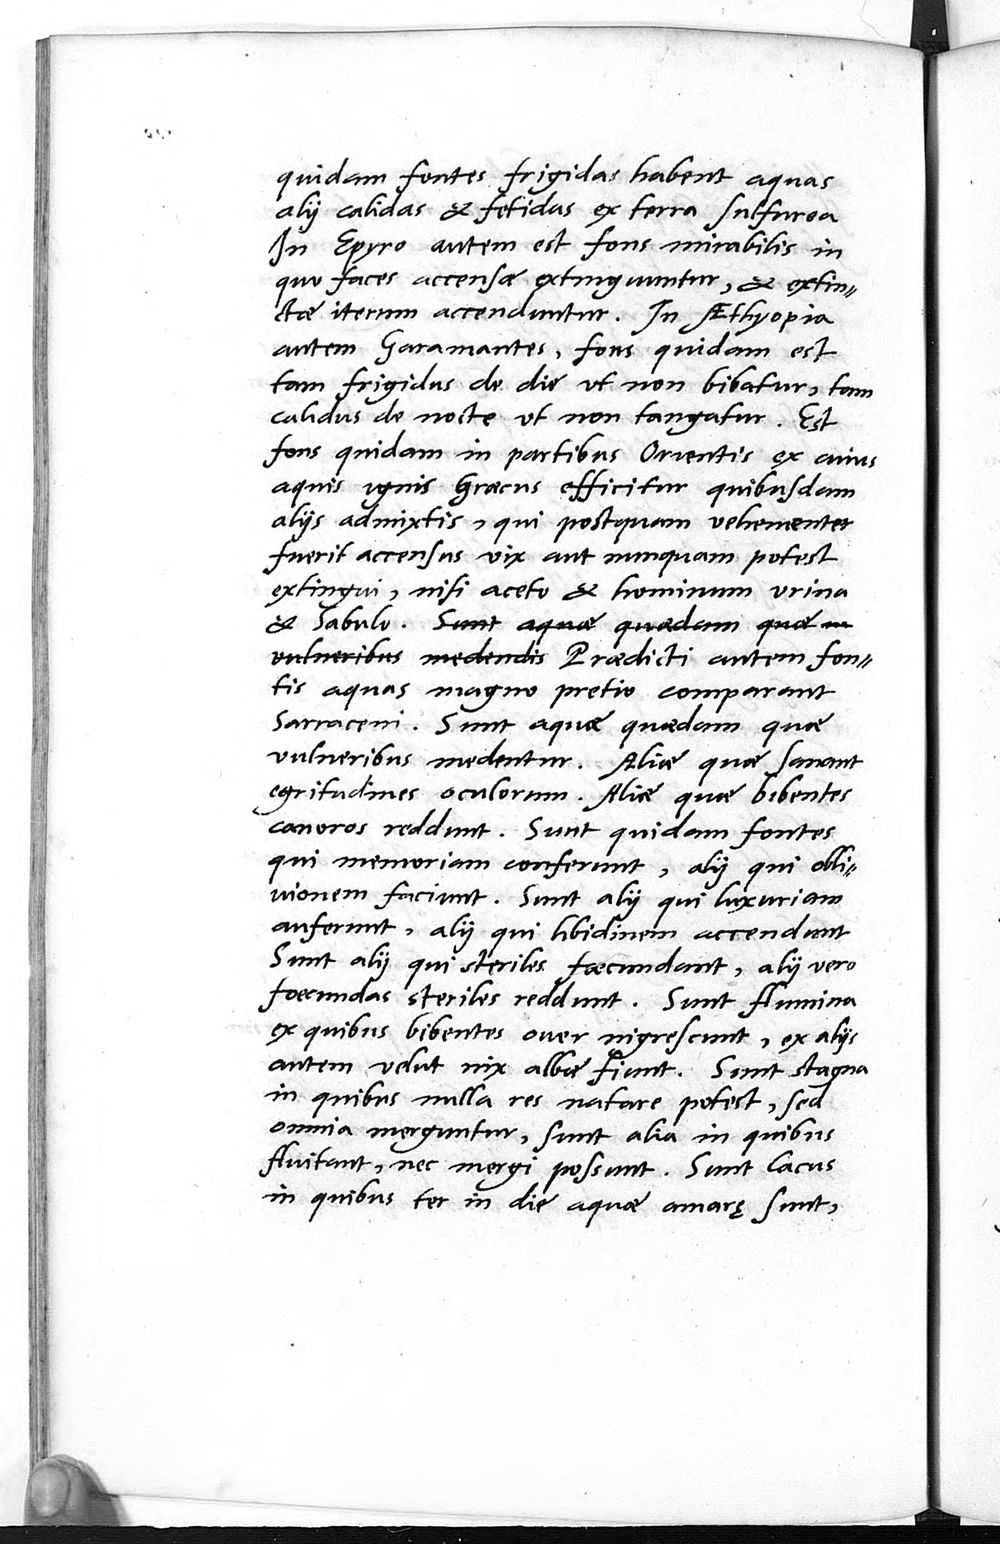 quidam fontes frigidas habent aquas
alij calidas & fetidas ex terra sulfurea
In Epyro autem est fons mirabilis in
quo faces accensæ extinguuntur, & extin„
ctæ iterum accenduntur. In Æthyopia
autem Garamantes, fons quidam est
tam frigidus de die vt non bibatur, tam
calidus de nocte vt non tangatur. Est
fons quidam in partibus Orientis ex cuius
aquis ygnis Græcus efficitur quibusdam
alijs admixtis, qui postquam vehementer
fuerit accensus vix aut nunquam potest
extingui, nisi aceto & hominum vrina
& Sabulo. Sunt aquæ quædam quæ in
vulneribus medendis Prædicti autem fon„
tis aquas magno pretio comparant
Sarraceni. Sunt aquæ quædam quæ
vulneribus medentur. Aliæ quæ sanant
egritudines oculorum. Aliæ quæ bibentes
canoros reddunt. Sunt quidam fontes
qui memoriam conferunt, alij qui obli„
uionem faciunt. Sunt alij qui luxuriam
auferunt, alij qui libidinem accendunt
Sunt alij qui steriles fœcundant, alij vero
foecundas steriles reddunt. Sunt flumina
ex quibus bibentes oues nigrescunt, ex alijs
autem velut nix albæ fiunt. Sunt stagna
in quibus nulla res natare potest, sed
omnia merguntur, sunt alia in quibus
fluitant, nec mergi possunt. Sunt Lacus
in quibus ter in die aquæ amarę sunt,